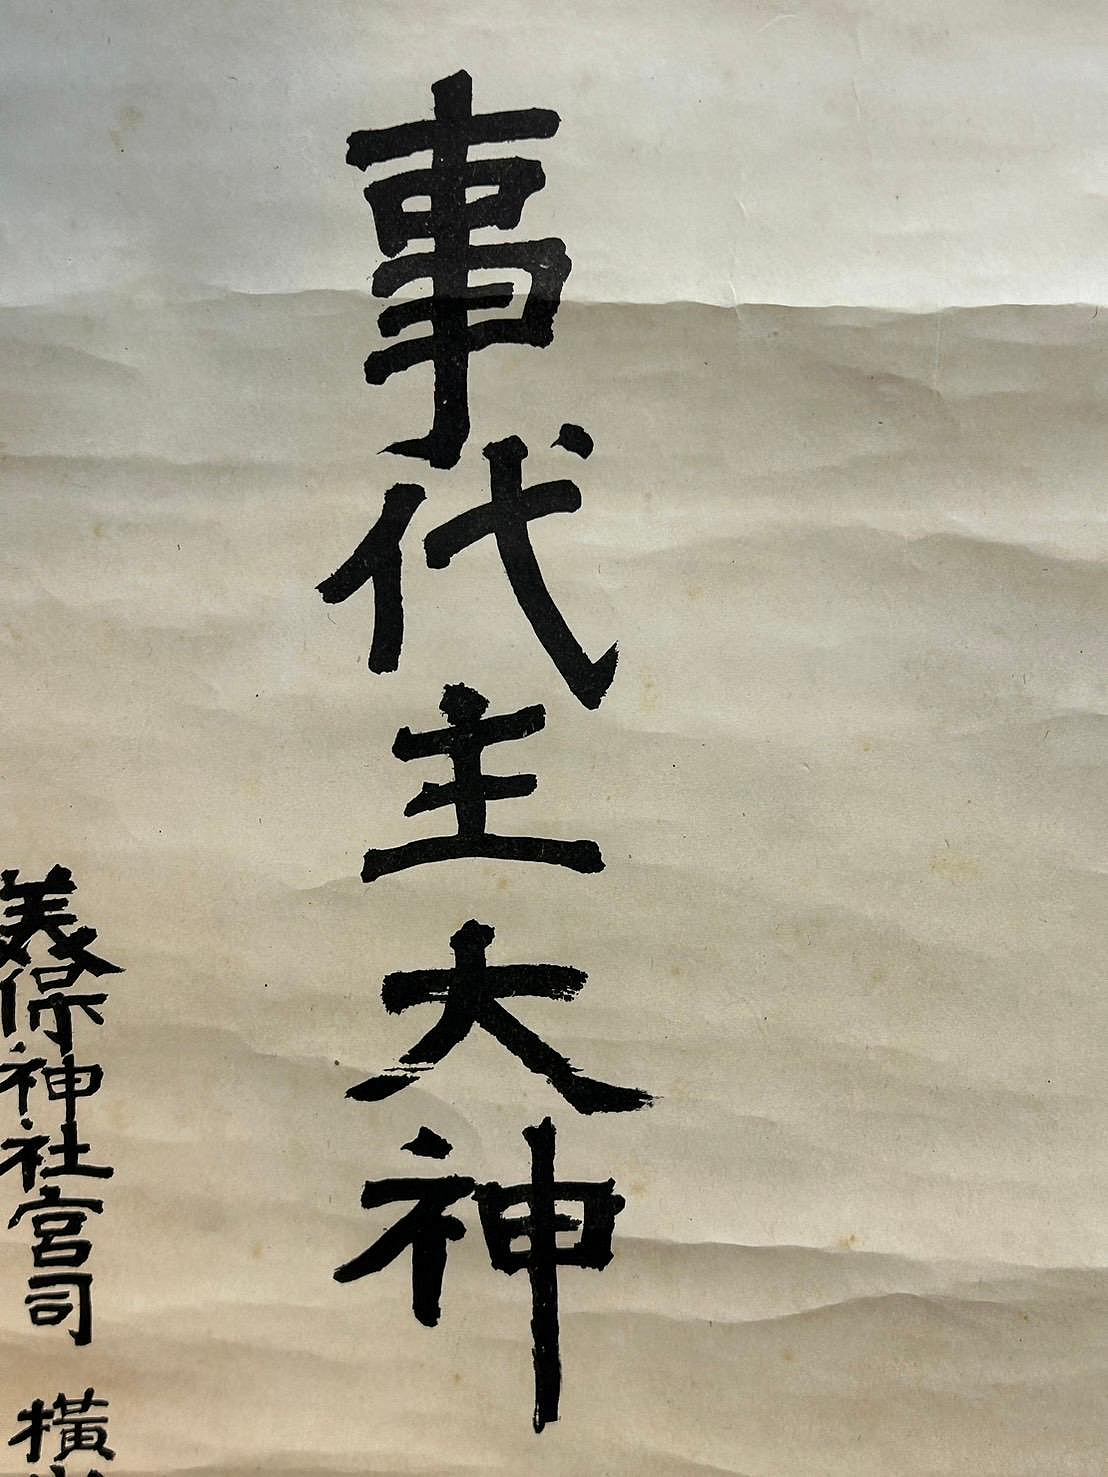 事代主大神
美保神社宮司 横